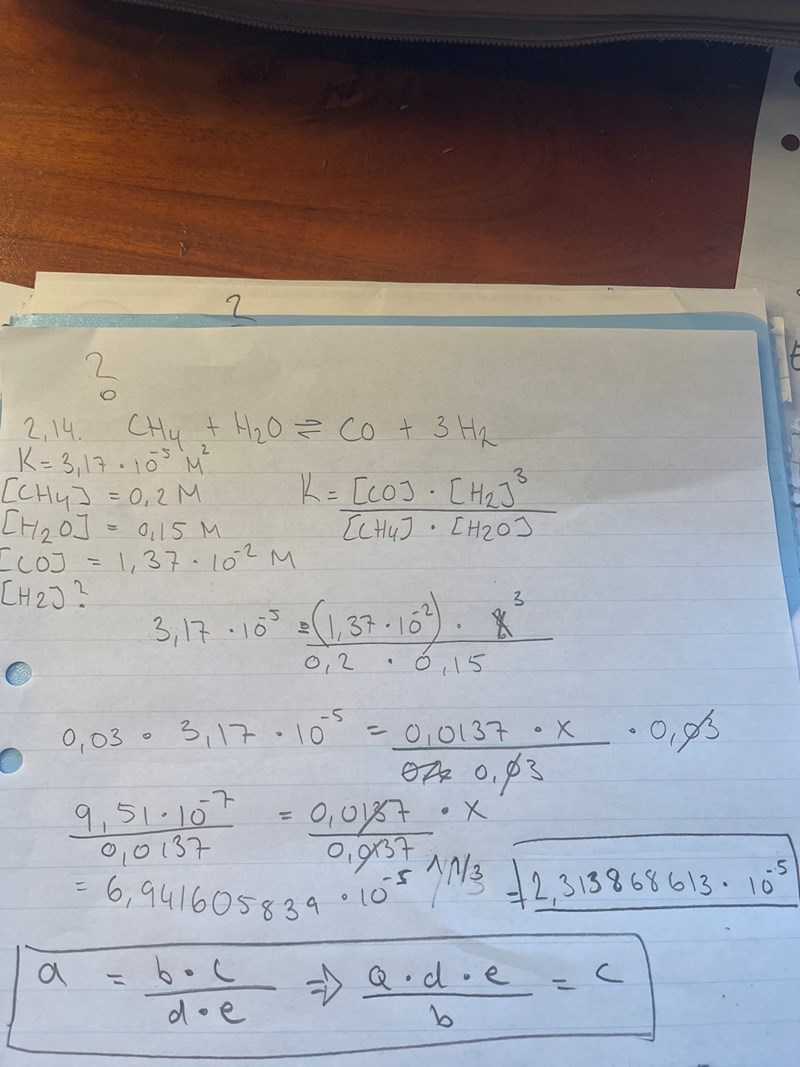 2
?
2,14. CH4 + H2O ⇌ CO + 3 H2
K = 3,17 · 10^-5 M^2
[CH4] = 0,2 M
K = [CO] · [H2]^3 / [CH4] · [H2O]
[H2O] = 0,15 M
[CO] = 1,37 · 10^-2 M
[H2]?
3,17 · 10^-5 = (1,37 · 10^-2) · x^3 / 0,2 · 0,15
0,03 · 3,17 · 10^-5 = 0,0137 · x / 0,03 · 0,03
9,51 · 10^-7 / 0,0137 = 0,0137 / 0,0137 · x
= 6,941605839 · 10^-5 ^1/3 = 2,313868613 · 10^-5
a = b · c / d · e ⇒ a · d · e / b = c